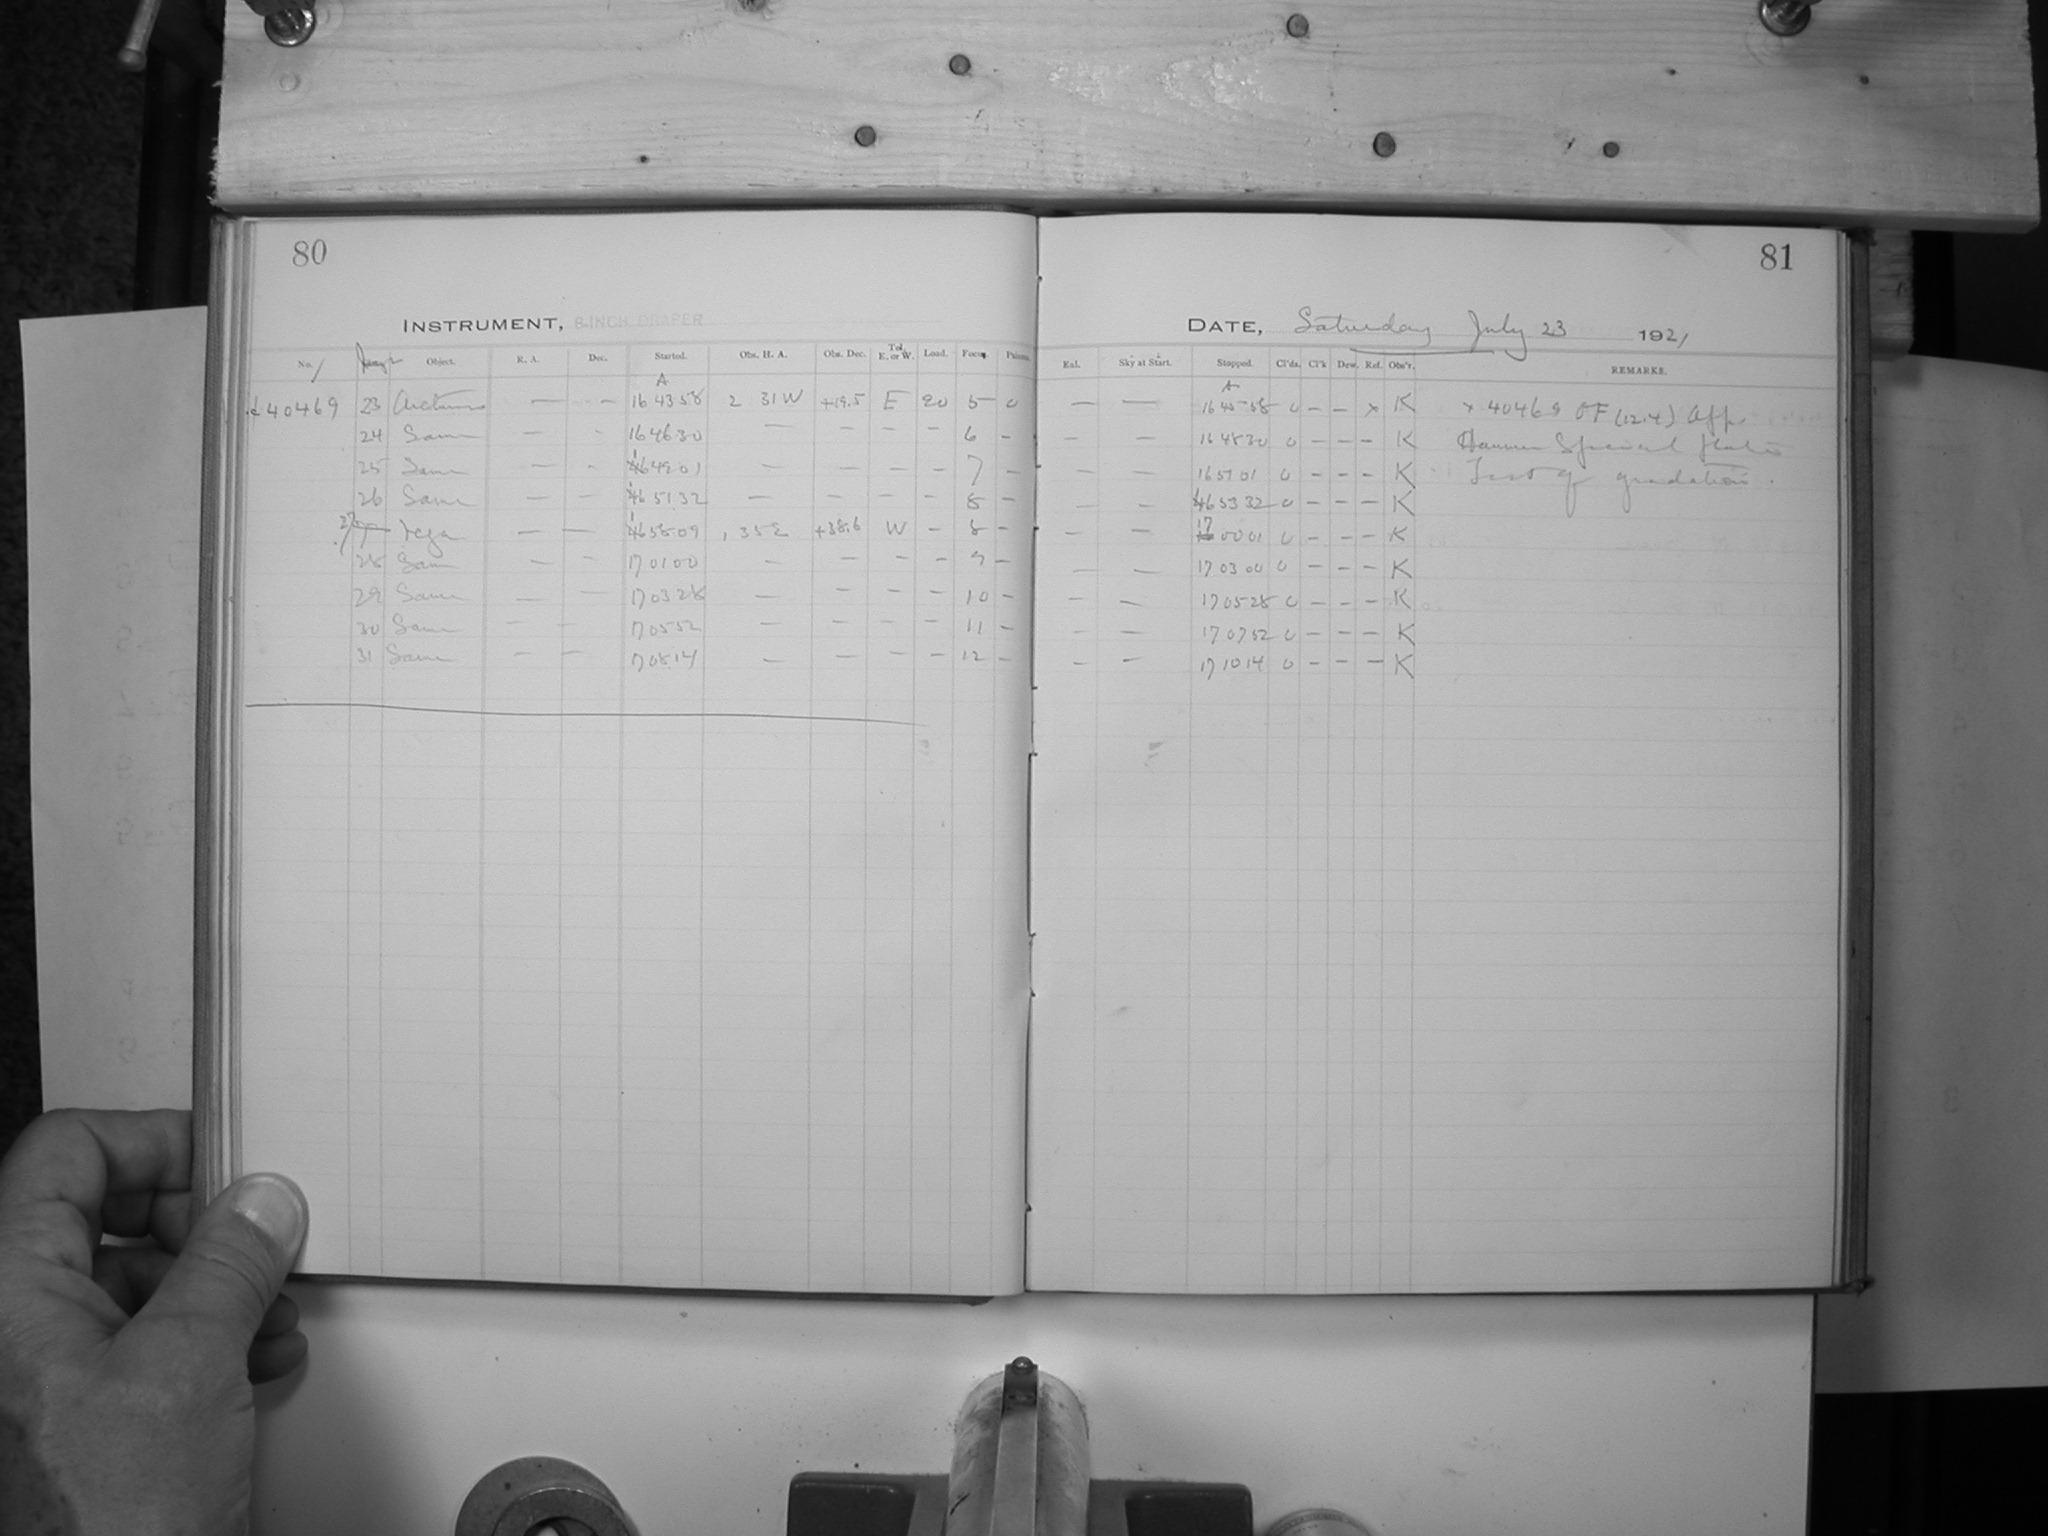 80
81
INSTRUMENT, 8-INCH DRAPER
DATE, Saturday July 23 1921
No. Object. R. A. Dec. Started. Obs. H. A. Obs. Dec. Tel. E. or W. Load. Focus. Exl. Sky at Start. Stopped. Cl'ds. Cl'k Dew. Ref. Obs'r. REMARKS.
A A
40469 23 Arcturus — - - 16 43 58 2 31 W +19.5 E 20 5 0 — — 16 45 58 0 — — x K x 40469 OF (12.4) App.
24 Same — - 16 46 30 — — — — 6 - — — 16 48 30 0 - - - K Special
25 Same — - 16 49 01 — — — — 7 - — — 16 51 01 0 - - - K Test of gradation.
26 Same — — 16 51 32 — — — — 8 - — — 16 53 32 0 - - - K
27 Vega — — 16 58 09 , 35 E +38.6 W - 8 - — — 17 00 01 0 - - - K
28 Same — — 17 01 00 — — — — 9 - — — 17 03 00 0 - - - K
29 Same — — 17 03 28 — — — — 10 - — — 17 05 28 0 - - - K
30 Same — — 17 05 52 — — — — 11 - — — 17 07 52 0 - - - K
31 Same — — 17 08 14 — — — — 12 - — — 17 10 14 0 - - - K